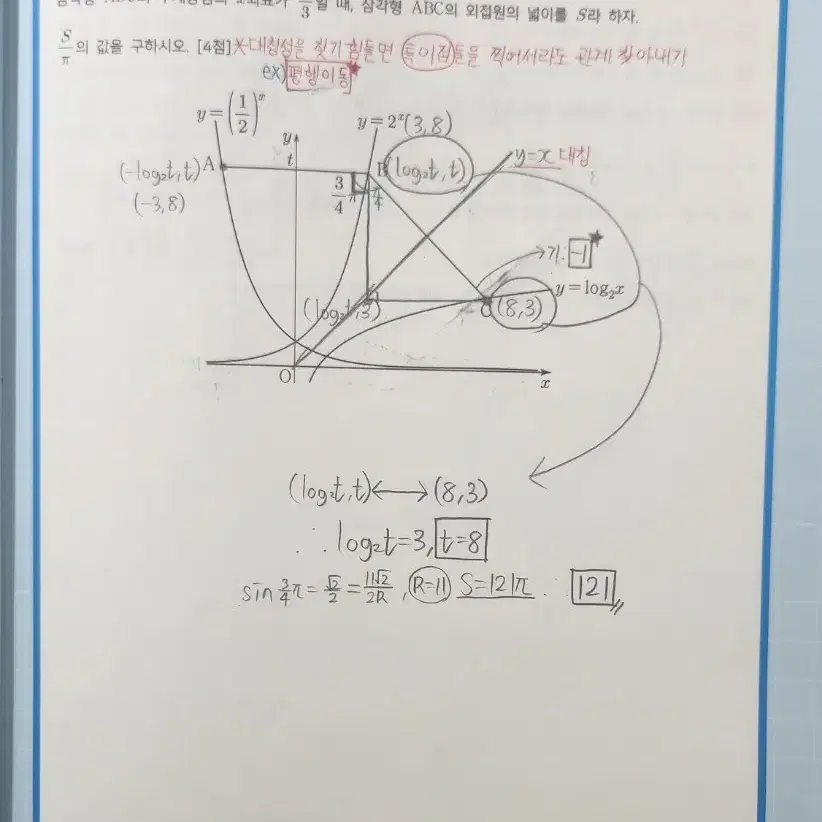 일 때, 삼각형 ABC의 외접원의 넓이를 S라 하자.
S/π의 값을 구하시오. [4점] ※대칭성을 찾기 힘들면 특이점들을 찍어서라도 관계 찾아내기
ex) 평행이동★
y=(1/2)^x
y=2^x (3,8)
y
t
(-log₂t, t) A
B (log₂t, t)
y=x 대칭
(-3,8)
3/4 π
π/4
기: -1 ★
y=log₂x
(log₂t, 3)
C (8,3)
O
x
(log₂t, t) ⟷ (8,3)
∴ log₂t=3, t=8
sin 3/4 π = √2/2 = 11√2/2R , R=11 S=121π ∴ 121